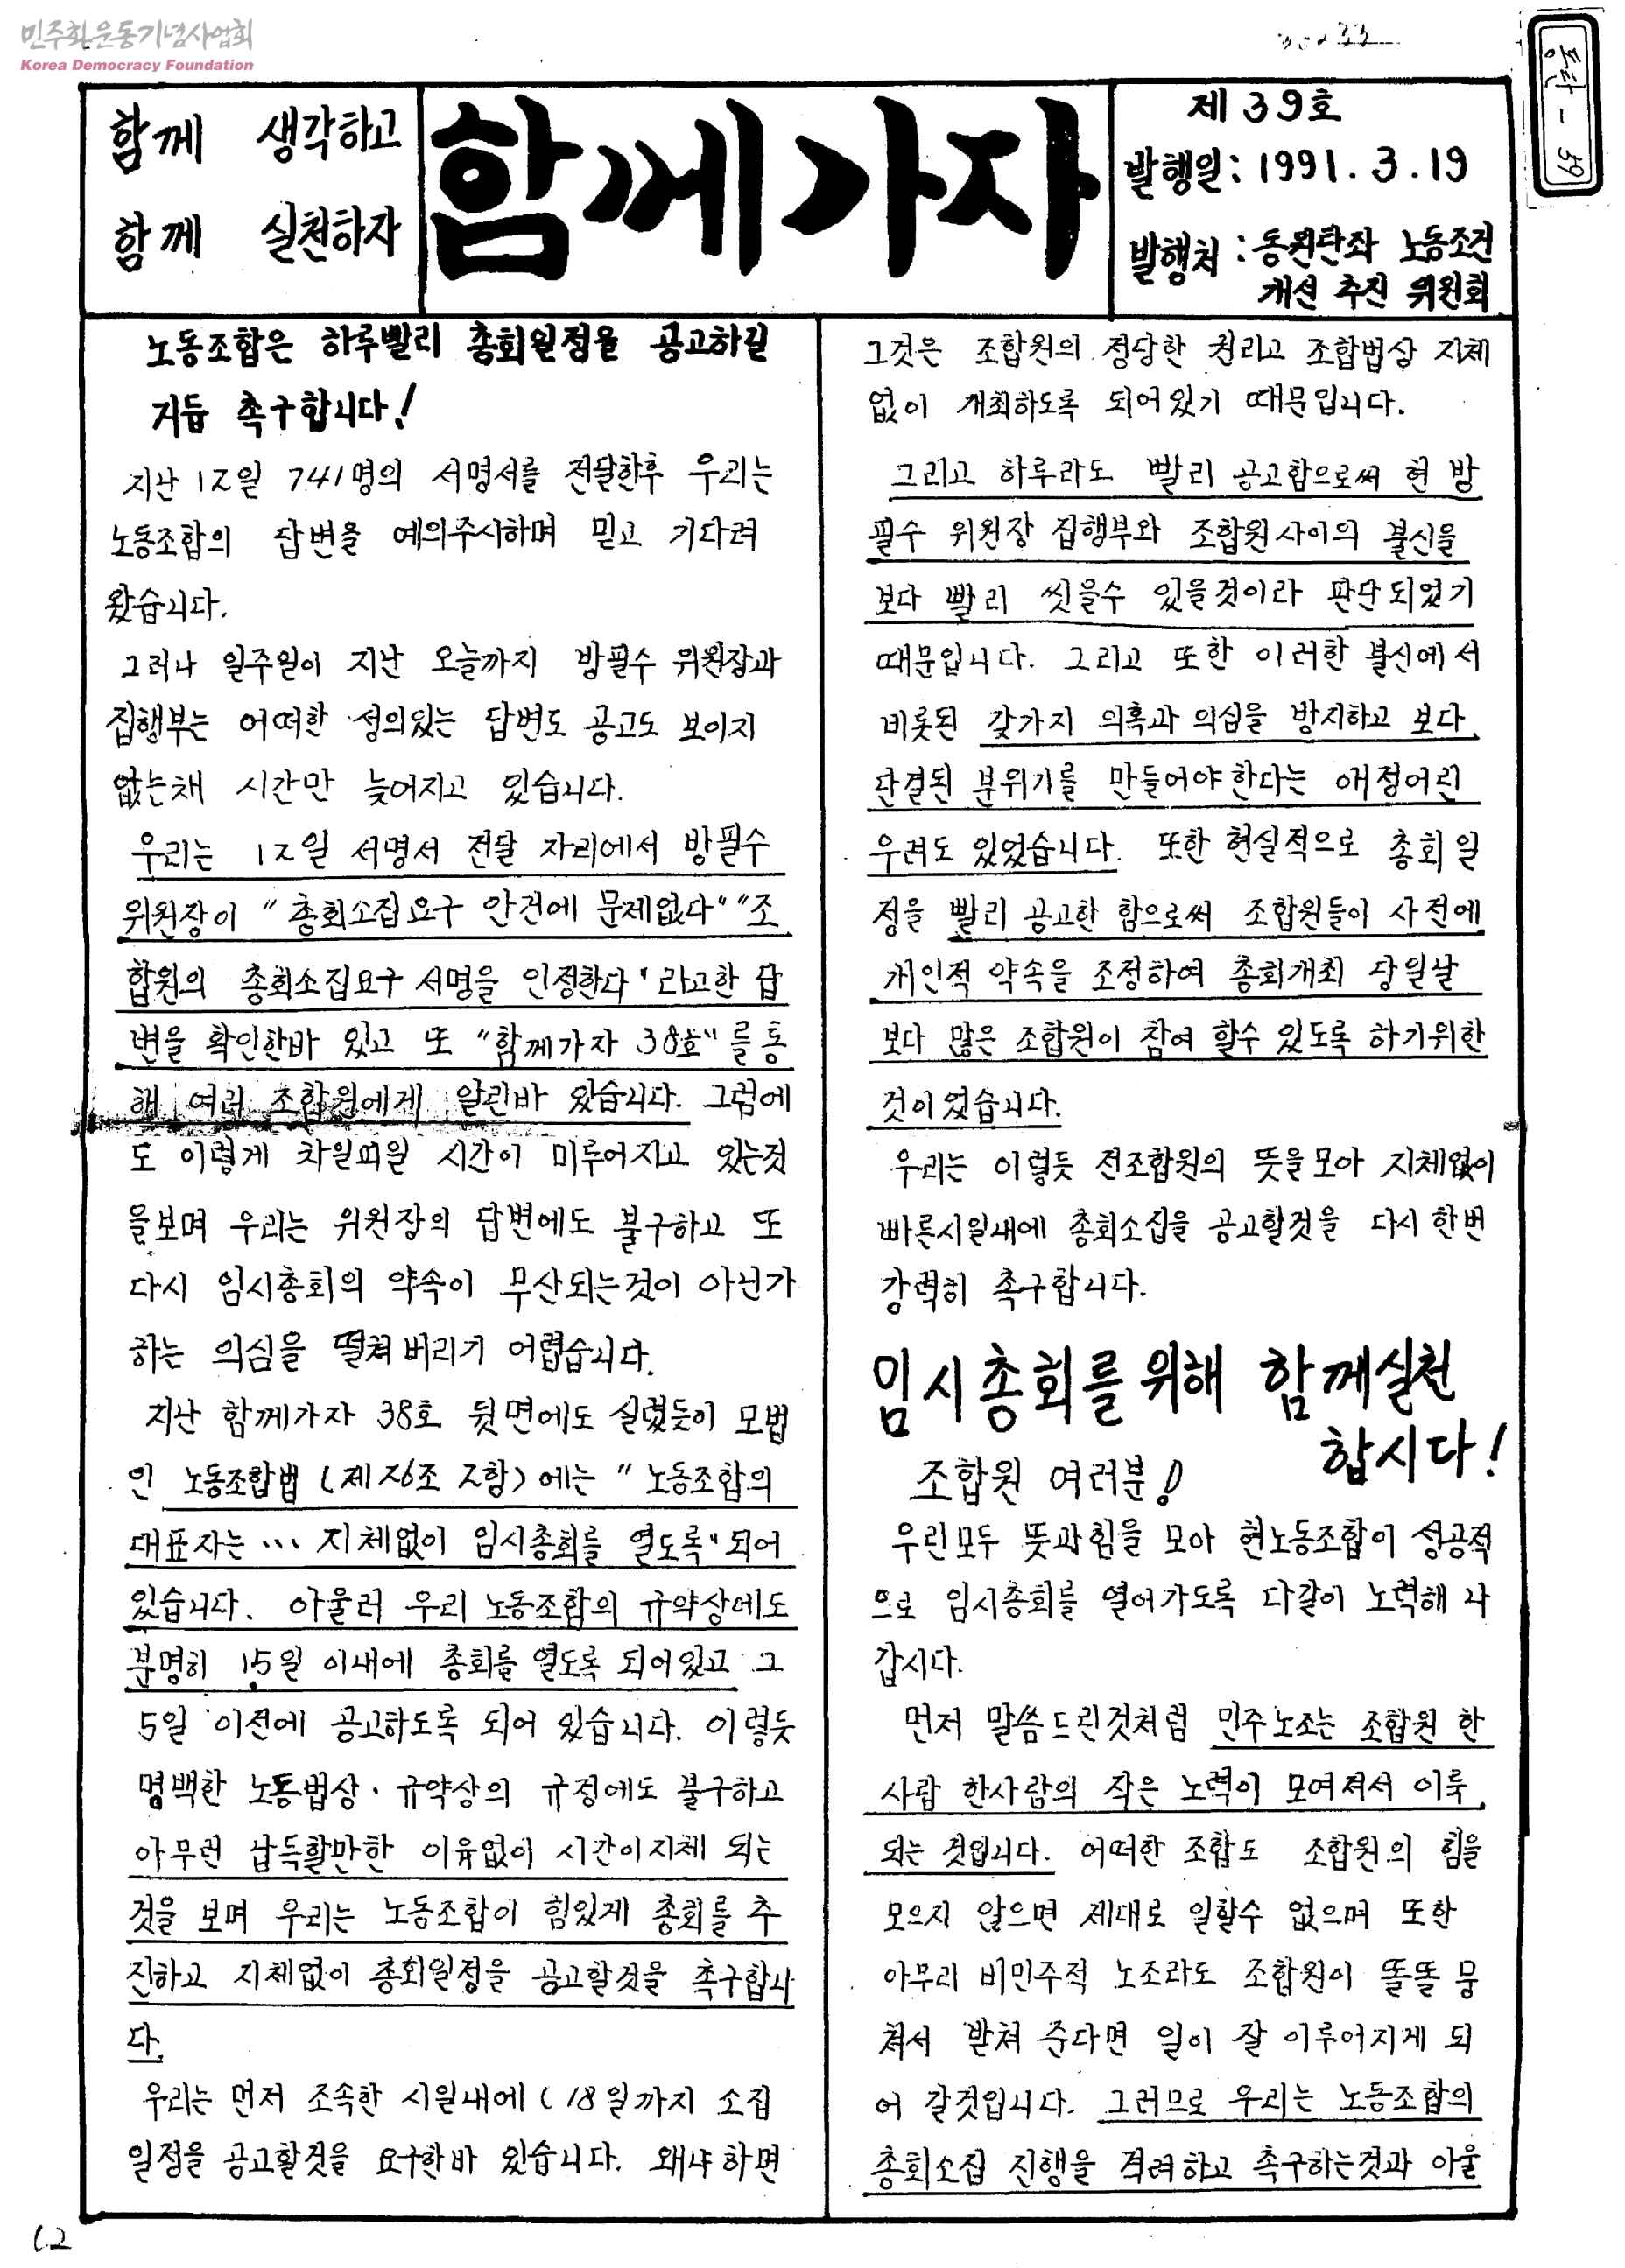 민주화운동기념사업회
Korea Democracy Foundation
30233
동탄-39
함께 생각하고
함께 실천하자
함께가자
제 39호
발행일: 1991. 3. 19
발행처: 동원탄좌 노동조건
개선 추진 위원회
노동조합은 하루빨리 총회일정을 공고하길
거듭 촉구합니다!
지난 12일 741명의 서명서를 전달한후 우리는
노동조합의 답변을 예의주시하며 믿고 기다려
왔습니다.
그러나 일주일이 지난 오늘까지 방필수 위원장과
집행부는 어떠한 성의있는 답변도 공고도 보이지
않는채 시간만 늦어지고 있습니다.
우리는 12일 서명서 전달 자리에서 방필수
위원장이 "총회소집요구 안건에 문제없다" "조
합원의 총회소집요구 서명을 인정한다" 라고한 답
변을 확인한바 있고 또 "함께가자 38호"를 통
해 여러 조합원에게 알린바 있습니다. 그럼에
도 이렇게 차일피일 시간이 미루어지고 있는것
을보며 우리는 위원장의 답변에도 불구하고 또
다시 임시총회의 약속이 무산되는것이 아닌가
하는 의심을 떨쳐버리기 어렵습니다.
지난 함께가자 38호 뒷면에도 실렸듯이 모법
인 노동조합법 (제26조 2항)에는 "노동조합의
대표자는 ... 지체없이 임시총회를 열도록" 되어
있습니다. 아울러 우리 노동조합의 규약상에도
분명히 15일 이내에 총회를 열도록 되어있고 그
5일 이전에 공고하도록 되어 있습니다. 이렇듯
명백한 노동법상·규약상의 규정에도 불구하고
아무런 납득할만한 이유없이 시간이지체 되는
것을 보며 우리는 노동조합이 힘있게 총회를 추
진하고 지체없이 총회일정을 공고할것을 촉구합니
다.
우리는 먼저 조속한 시일내에 (18일까지 소집
일정을 공고할것을 요구한바 있습니다. 왜냐하면
그것은 조합원의 정당한 권리고 조합법상 지체
없이 개최하도록 되어있기 때문입니다.
그리고 하루라도 빨리 공고함으로써 현 방
필수 위원장 집행부와 조합원사이의 불신을
보다 빨리 씻을수 있을것이라 판단되었기
때문입니다. 그리고 또한 이러한 불신에서
비롯된 갖가지 의혹과 의심을 방지하고 보다
단결된 분위기를 만들어야한다는 애정어린
우려도 있었습니다. 또한 현실적으로 총회일
정을 빨리 공고한 함으로써 조합원들이 사전에
개인적 약속을 조정하여 총회개최 당일날
보다 많은 조합원이 참여 할수 있도록 하기위한
것이었습니다.
우리는 이렇듯 전조합원의 뜻을모아 지체없이
빠른시일내에 총회소집을 공고할것을 다시한번
강력히 촉구합니다.
임시총회를 위해 함께실천
합시다!
조합원 여러분!
우린모두 뜻과힘을 모아 현노동조합이 성공적
으로 임시총회를 열어가도록 다같이 노력해 나
갑시다.
먼저 말씀드린것처럼 민주노조는 조합원 한
사람 한사람의 작은 노력이 모여져서 이룩
되는 것입니다. 어떠한 조합도 조합원의 힘을
모으지 않으면 제대로 일할수 없으며 또한
아무리 비민주적 노조라도 조합원이 똘똘 뭉
쳐서 받쳐 준다면 일이 잘 이루어지게 되
어 갈것입니다. 그러므로 우리는 노동조합의
총회소집 진행을 격려하고 촉구하는것과 아울
1.2